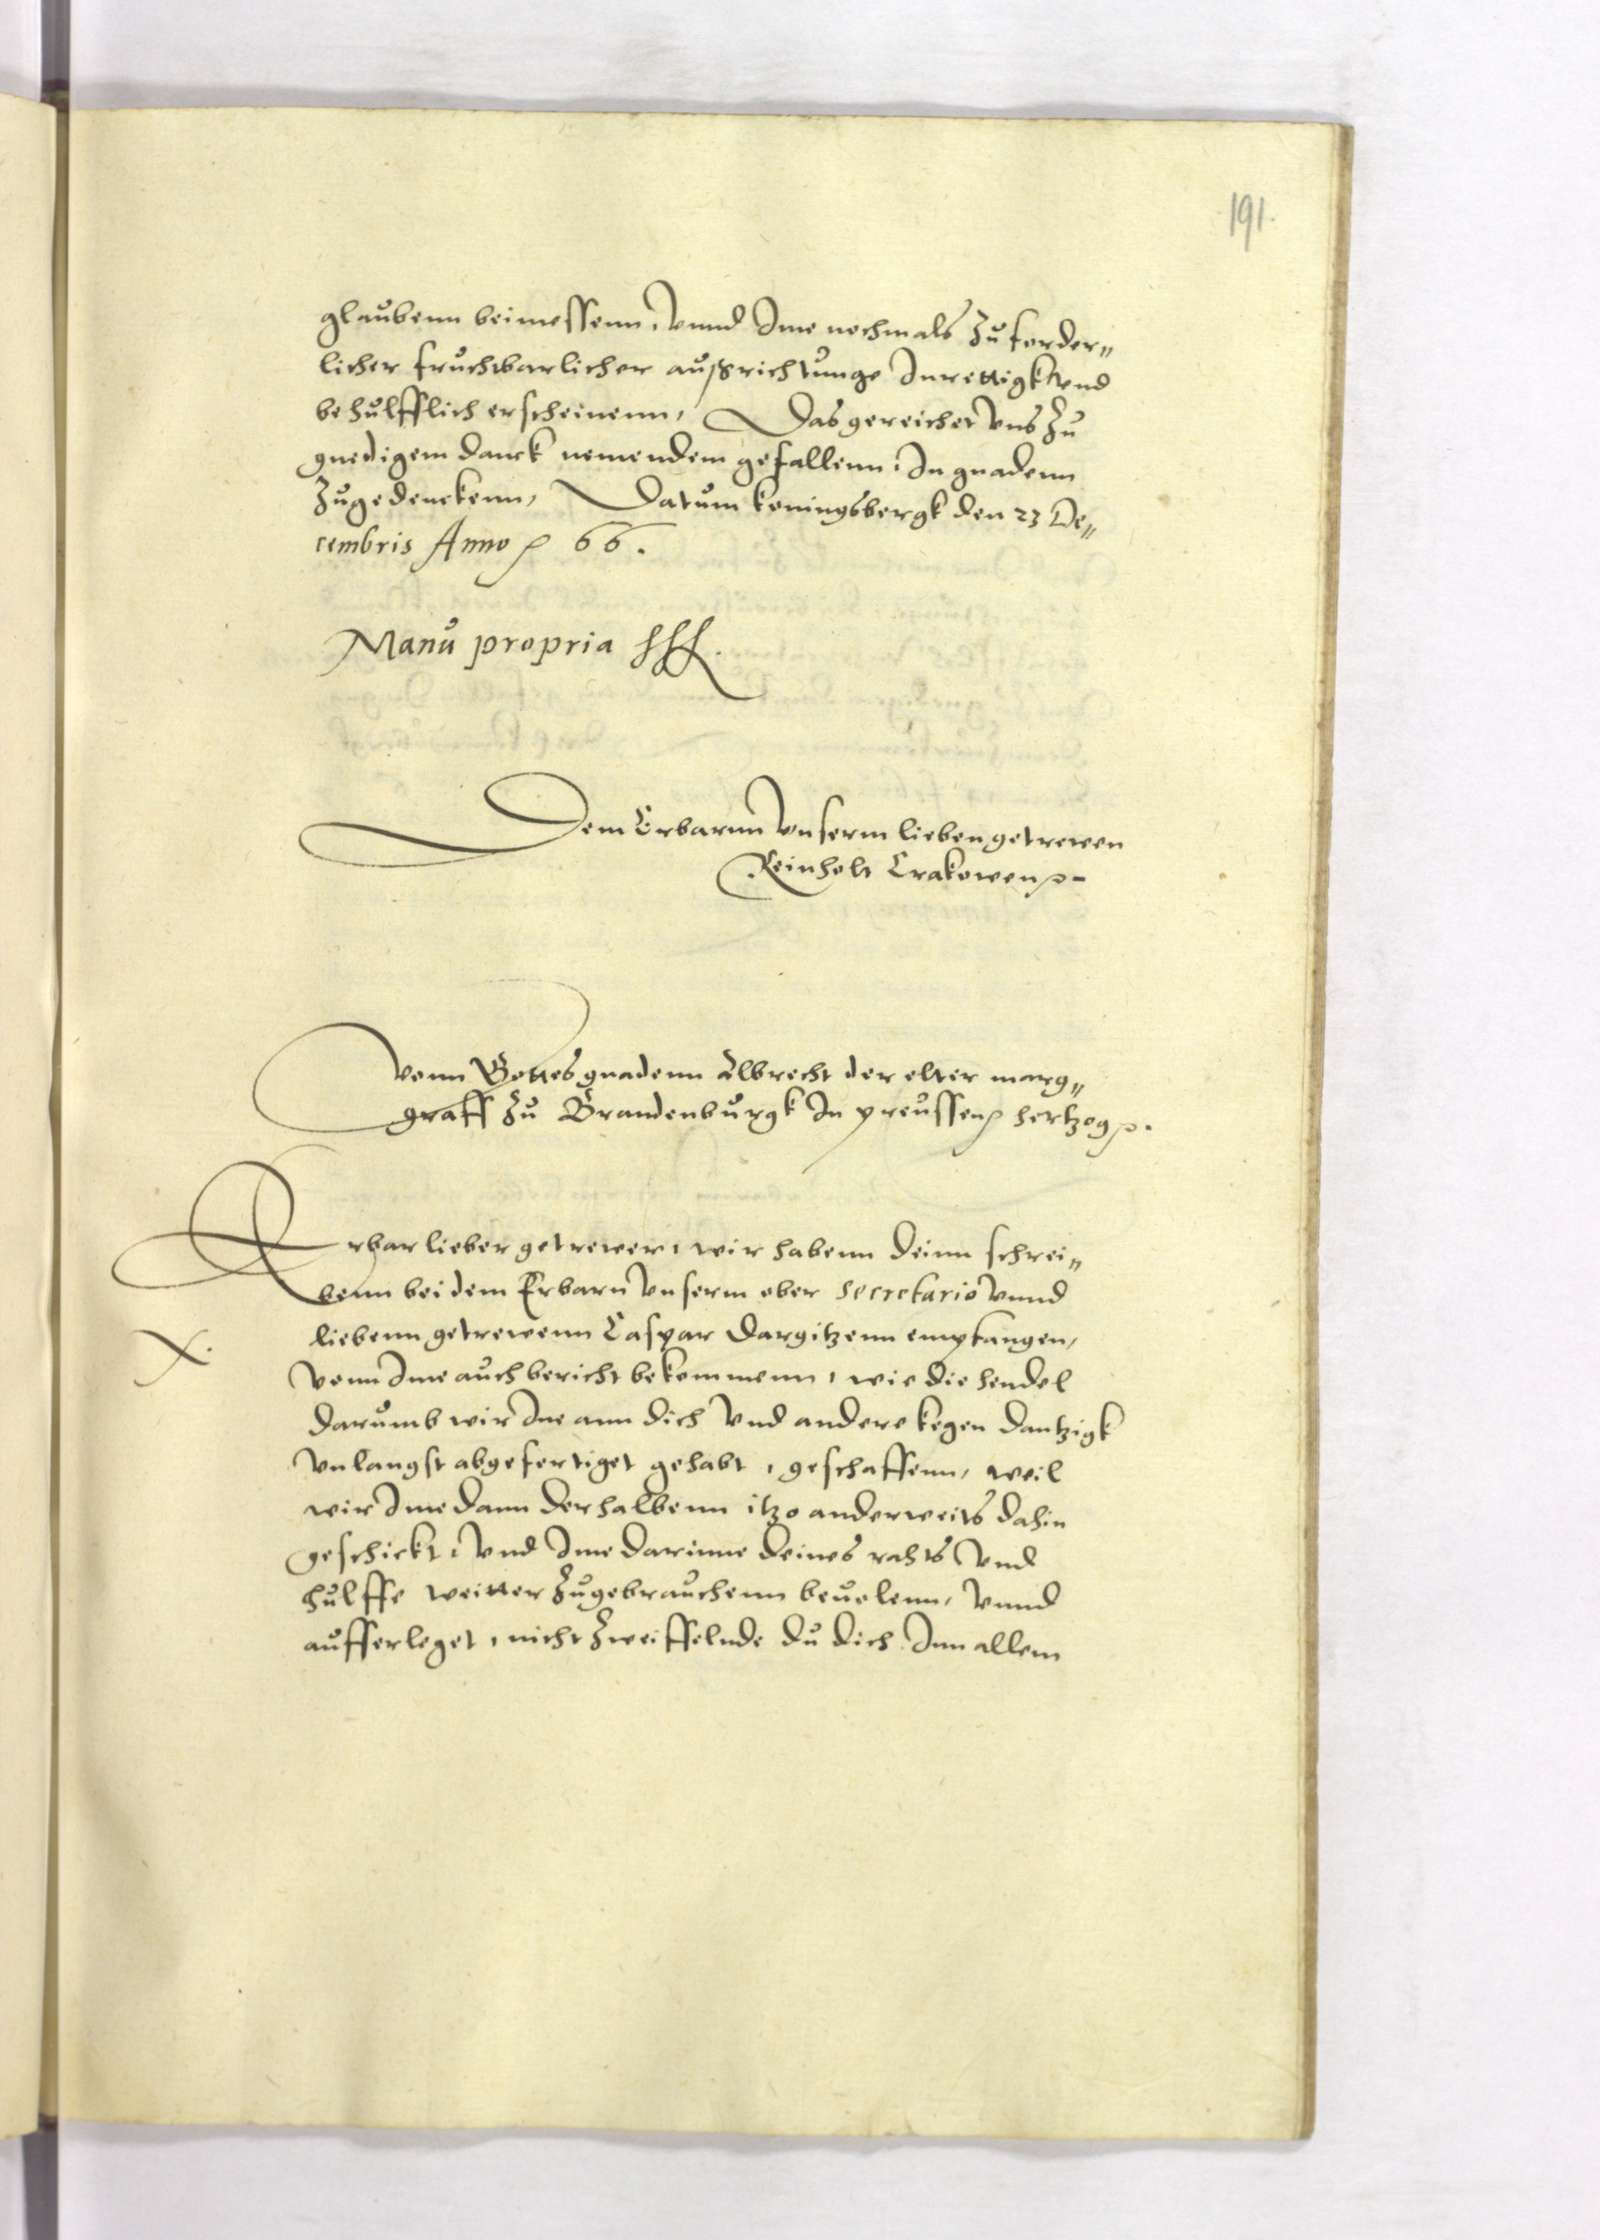 191.
glaubenn beimessenn, Vnnd Ime nochmals Zu forder„
licher fruchbarlicher außrichtunge Inrettigk Vnd
behulfflich erscheinenn, Das gereichet Vns Zu
gnedigem danck nemendem gefallenn, In gnadenn
Zugedenckenn, Datum koningsbergk den 23 De„
cembris Anno 66.
Manu propria
Dem Erbarnn Vnserm lieben getrewen
Reinholt Crakowen
Vonn Gottes gnadenn Albrecht der elter marg„
graff Zu Brandenburgk In preussen hertzog
Erbar lieber getrewer, wir habenn deinn schrei„
benn bei dem Erbarn Vnserm ober Secretario Vnnd
X. liebenn getrewenn Caspar Dargitzenn empfangen,
Vonn Ime auch bericht bekommenn, wie die hendel
darumb wir Ine ann dich Vnd andere kegen dantzigk
Vnlangst abgefertiget gehabt, geschaffenn, weil
wir Ime dann derhalbenn itzo anderweits dahin
geschickt, Vnd Ime darinne deines rahts Vnd
hulffe weitter Zugebrauchenn beuelenn, Vnnd
aufferleget, nicht Zweiffelnde du dich Inn allem